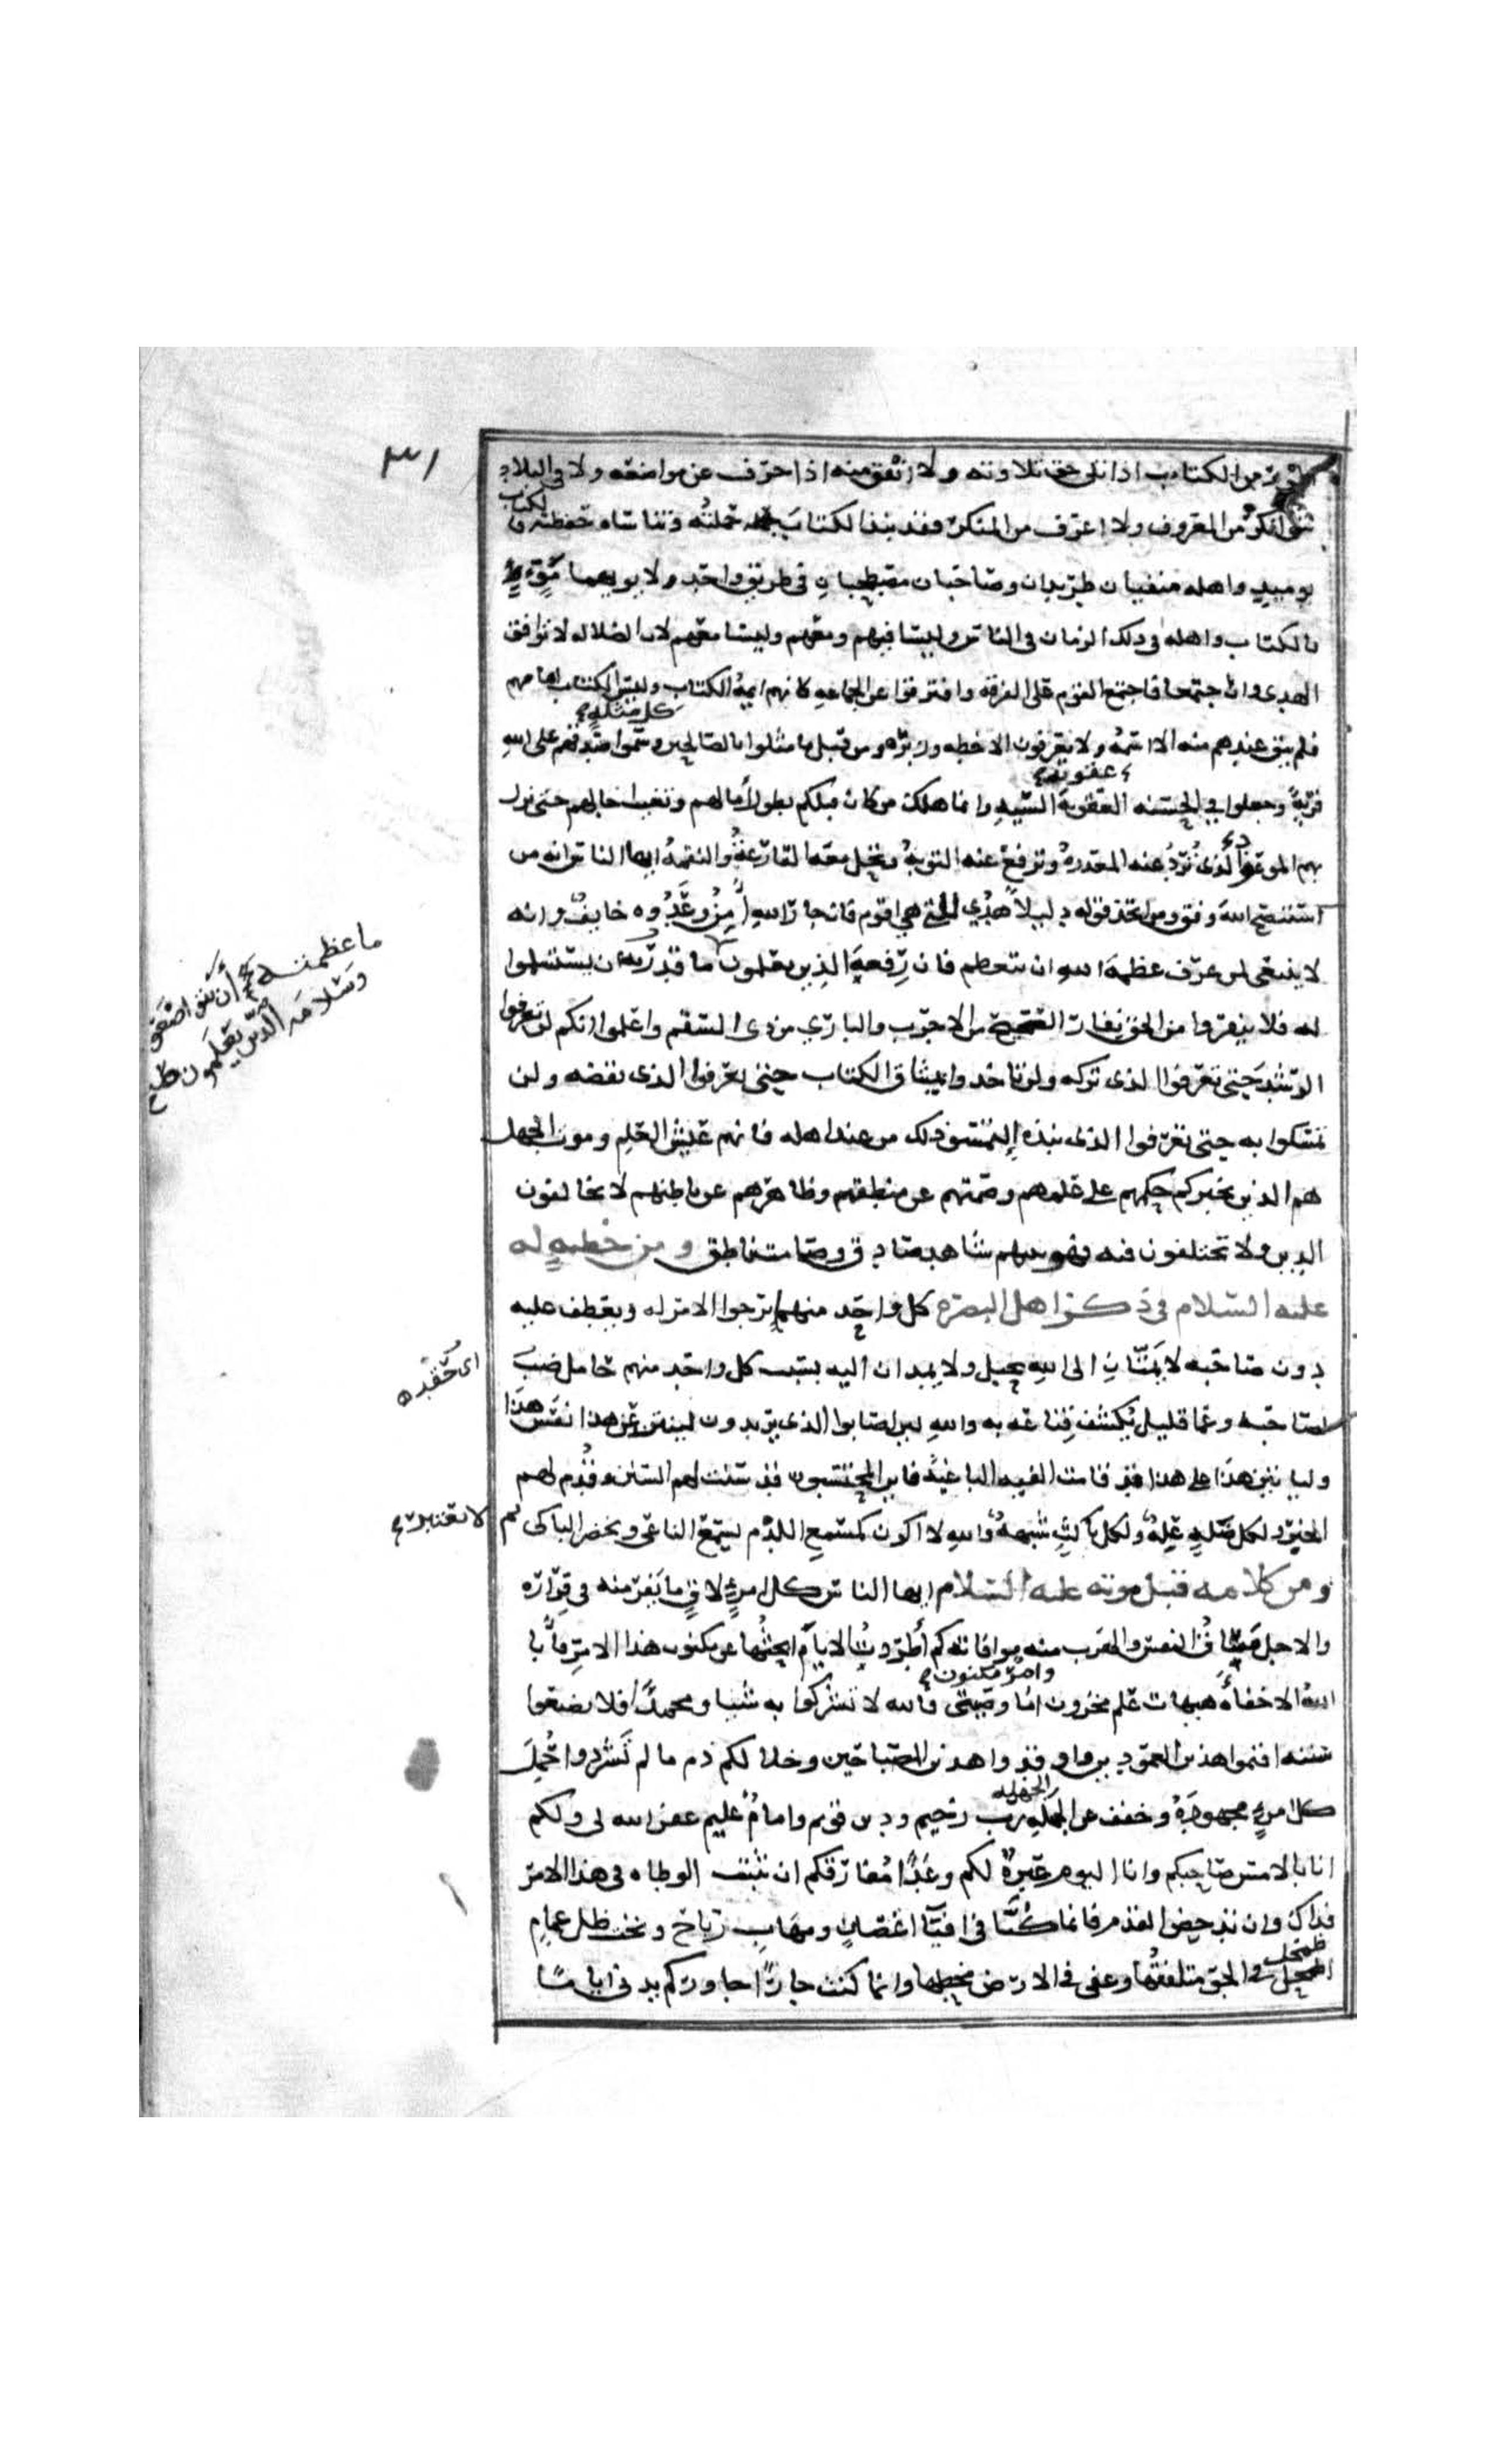 ابور من الكتاب اذا تلى حق تلاوته ولا انفق منه اذا حرف عن مواضعه ولا فى البلاد
شئ انكر من المعروف ولا اعرف من المنكر فقد نبذ الكتاب حملته وتناساه حفظته فا
لكتاب
يوميذ واهله منفيان طريدان وصاحبان مصطحبان فى طريق واحد ولا يويهما مؤو
فالكتاب واهله فى ذلك الزمان فى الناس وليسا فيهم ومعهم وليسا معهم لان الضلاله لا توافق
الهدى وان اجتمعا فاجتمع القوم على الفرقه وافترقوا عن الجماعه كانهم ايمة الكتاب وليس الكتاب امامهم
كل مثلة
فلم يبق عندهم منه الا اسمه ولا يعرفون الا خطه وزبره ومن قبل ما مثلوا بالصالحين وسموا صدقهم على الله
عقوبة
فرية وجعلوا فى الحسنه العقوبة السيه وانما هلك من كان قبلكم بطول امالهم وتغيب اجالهم حتى نزل
بهم الموعود الذى ترد عنه المعذرة وترفع عنه التوبة وتحل معه القارعة والنقمة ايها الناس انه من
استنصح الله وفق ومن اتخذ قوله دليلا هدى للتى هى اقوم فان جار الله امن وعدوه خايف وانه
لا ينبغى لمن عرف عظمة الله ان يتعظم فان رفعة الذين يعلمون ما قدرته ان يستسلموا
ما عظمته أن يتواضعوا
وسلامة الذين يعلمون
له فلا ينفروا من الحق نفار الصحيح من الاجرب والبارى من ذى السقم واعلموا انكم لن تعرفوا
الرشد حتى تعرفوا الذى تركه ولن تاخذوا بميثاق الكتاب حتى تعرفوا الذى نقضه ولن
تمسكوا به حتى تعرفوا الذى نبذه فالتمسوا ذلك من عند اهله فانهم عيش العلم وموت الجهل
هم الذين يخبركم حكمهم على علمهم وصمتهم عن منطقهم وظاهرهم عن باطنهم لا يخالفون
الدين ولا يختلفون فيه فهو بينهم شاهد صادق وصامت ناطق ومن خطبه له
عليه السلام فى ذكر اهل البصره كل واحد منهما يرجوا الامر له ويعطفه عليه
دون صاحبه لا يمتان الى الله بحبل ولا يمدان اليه بسبب كل واحد منهم حامل ضب
اى حقد
لصاحبه وعما قليل يكشف قناعه به والله لين اصابوا الذى يريدون لينتزعن هذا نفس هذا
ولياتين هذا على هذا قد قامت الفيه الباغية فاين المحتسبون قد سنت لهم السنن وقدم لهم
الخبر ولكل ضلة علة ولكل ناكث شبهة والله لا اكون كمستمع اللدم يسمع الناعى ويحضر الباكى ثم
لا يعتبر
ومن كلامه قبل موته عليه السلام ايها الناس كل امرئ لاق ما يفر منه فى فراره
والاجل مساق النفس والهرب منه موافاته كم اطردت الايام ابحثها عن مكنون هذا الامر فأبا
وامر مكنون
الله الا اخفاءه هيهات علم مخزون اما وصيتى فالله لا تشركوا به شيا ومحمدا فلا تضيعوا
سنته اقيموا هذين العمودين واوقدوا هذين المصباحين وخلاكم ذم ما لم تشردوا حمل
كل امرئ مجهوده وخفف عن الجهلة رب رحيم ودين قويم وامام عليم غفر الله لى ولكم
انا بالامس صاحبكم وانا اليوم عبرة لكم وغدا مفارقكم ان تثبت الوطاه فى هذا الامر
فذاك وان تدحض القدم فانما كنا فى افياء اغصان ومهاب رياح وتحت ظل غمام
اضمحل فى الجو متلفقها وعفى فى الارض مخطها وانما كنت جارا جاوركم بدنى اياما